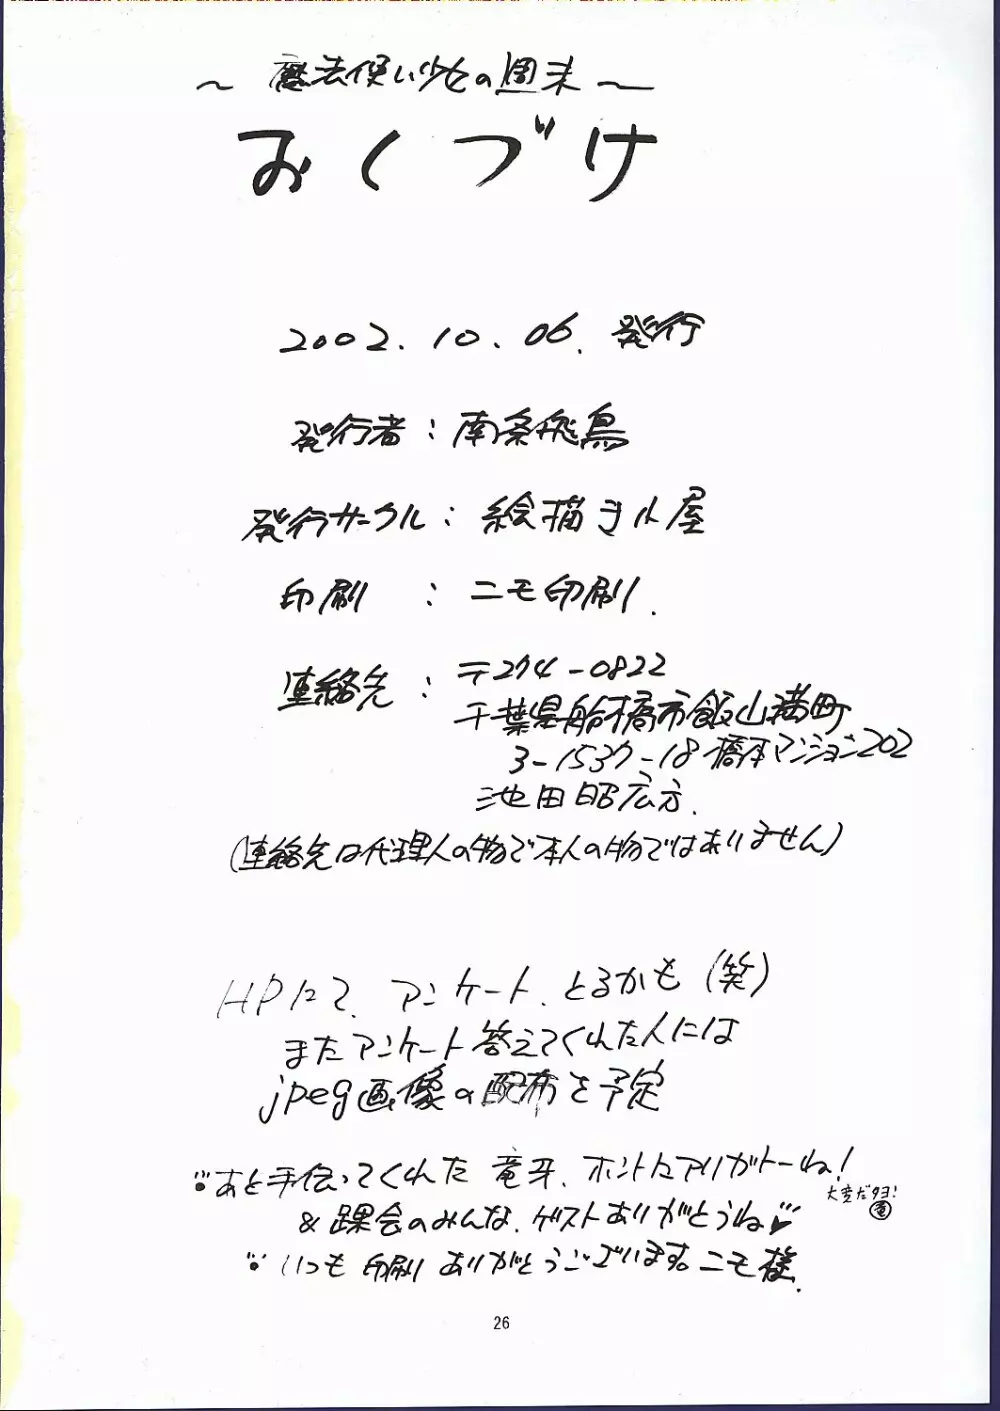 ～ 魔法使い少女の週末 ～
おくづけ
2002.10.06.発行
発行者：南条飛鳥
発行サークル：絵描き小屋
印刷：ニモ印刷.
連絡先：〒274-0822
千葉県船橋市飯山満町
3-1537-18 橋本マンション202
池田昭広方.
(連絡先は代理人の物で本人の物ではありません)
HPにて、アンケート、とるかも(笑)
またアンケート答えてくれた人には
jpeg画像の配布を予定
あと手伝ってくれた 竜牙、ホントにアリガトーね!
大変だタヨ! 竜
& 課会のみんな、ゲストありがとうね♥
いつも 印刷 ありがとうございます。ニモ様.
26